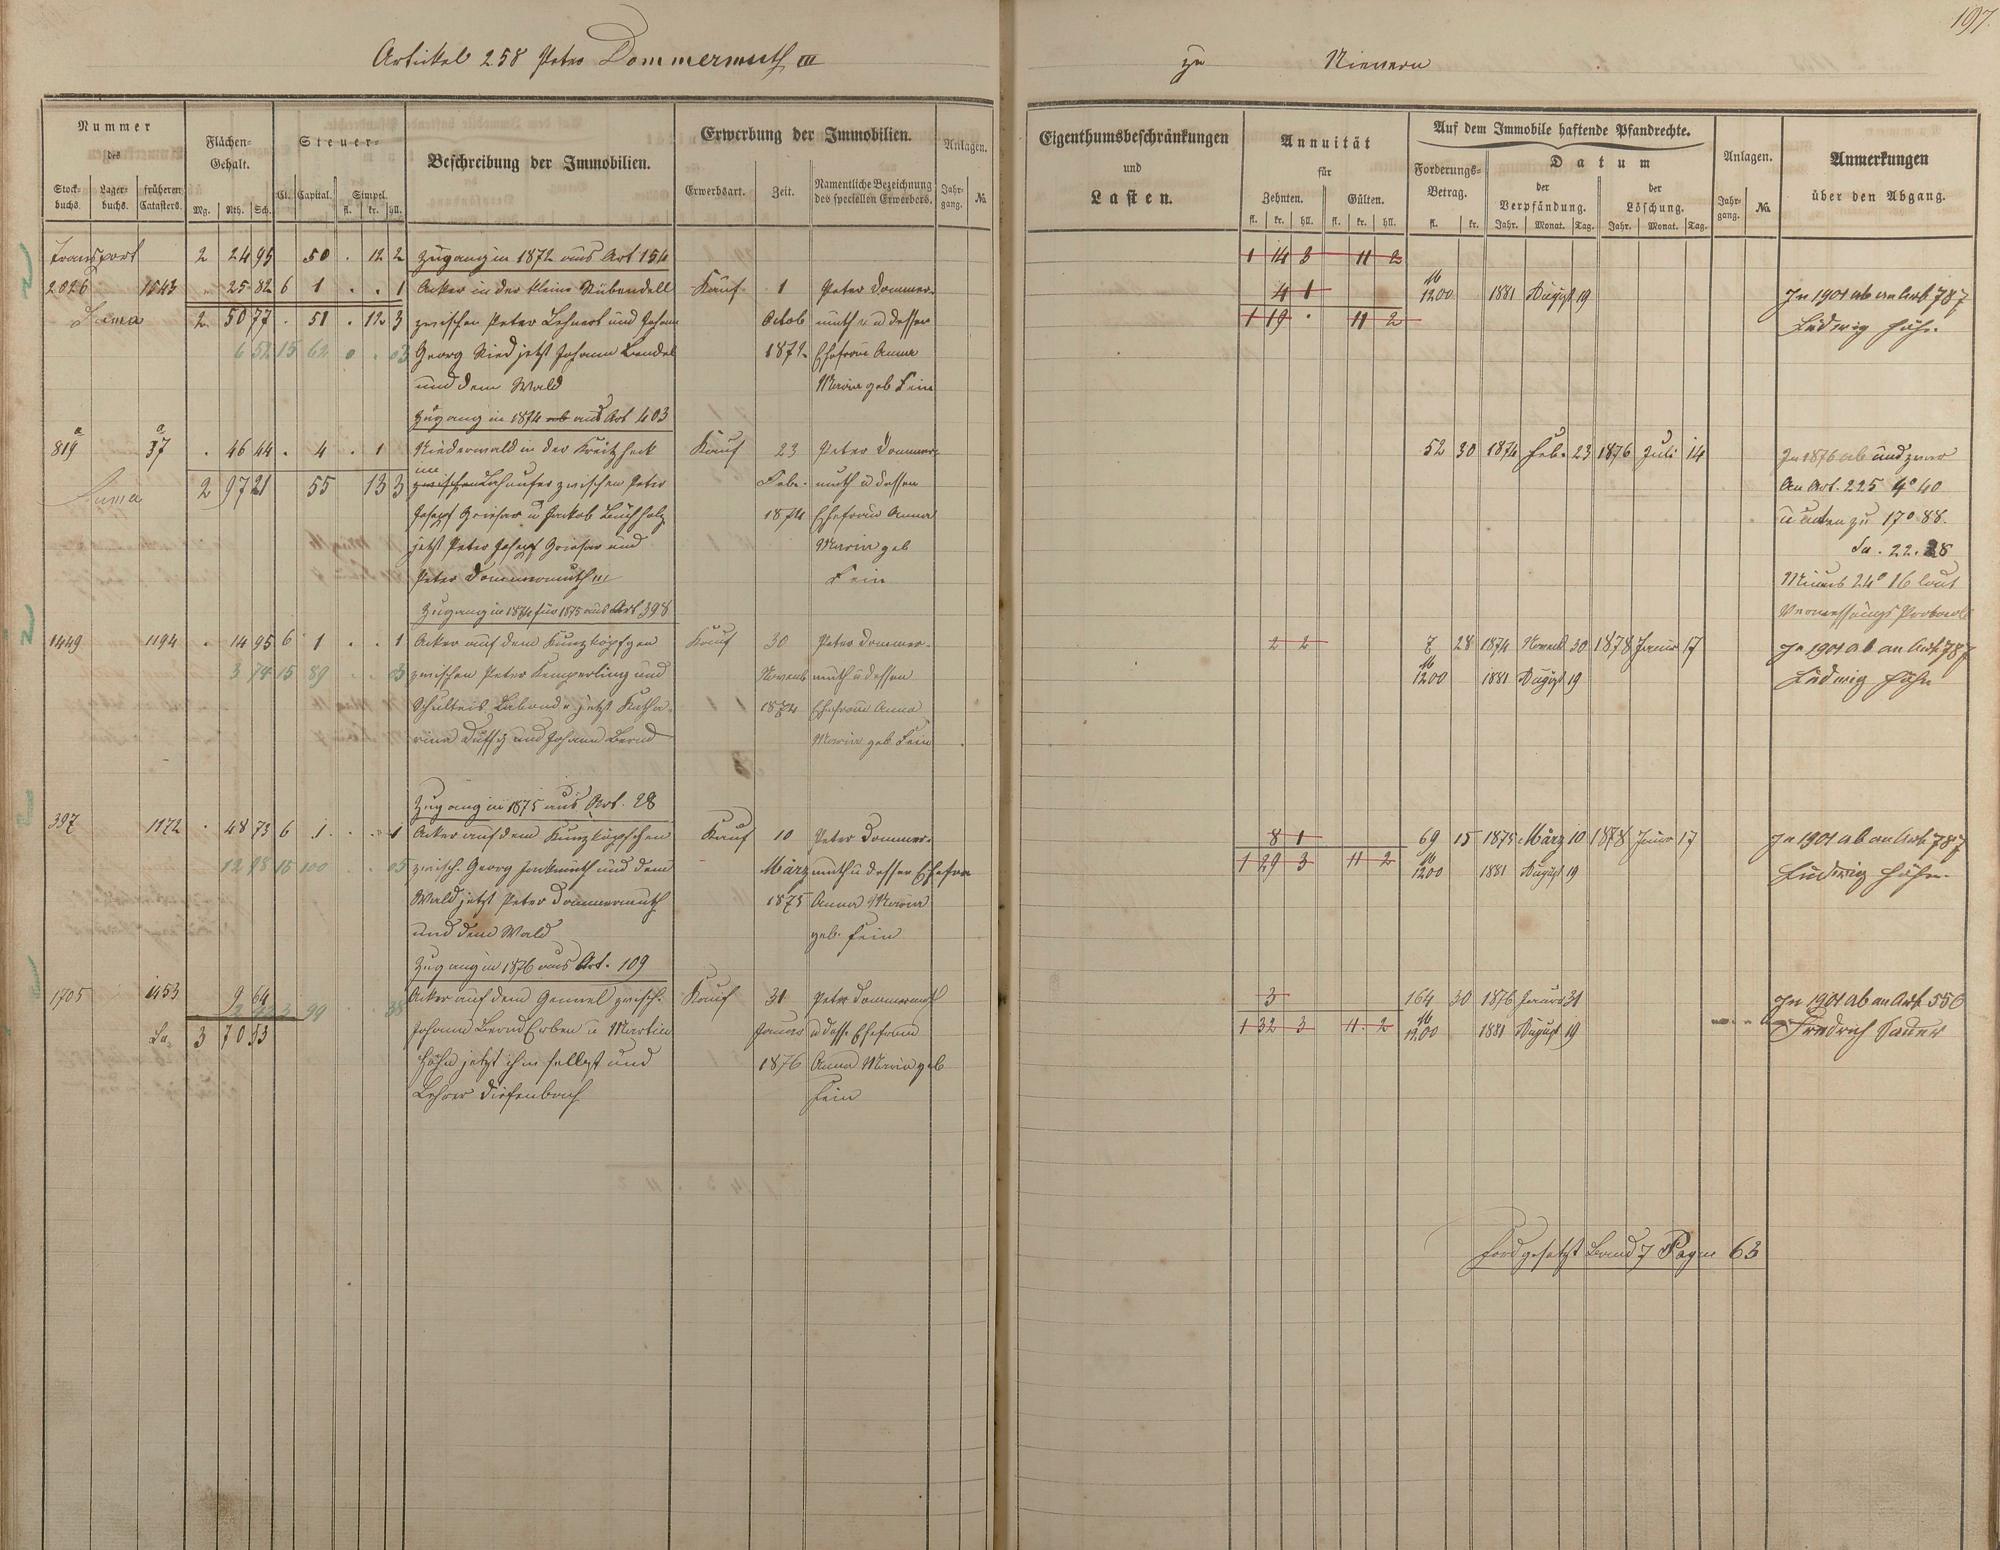 197.
Artikel 258 Peter Dommermuth III zu Nievern
Nummer
des
Stock-
buchs.
Lager-
buchs.
früheren
Catasters.
Flächen-
Gehalt.
Mg. Rth. Sch.
Steuer-
Cl. Capital. Simpel.
fl. kr. hll.
Beschreibung der Immobilien.
Erwerbung der Immobilien.
Erwerbsart. Zeit.
Namentliche Bezeichnung
des speciellen Erwerbers.
Anlagen.
Jahr-
gang.
№
Eigenthumsbeschränkungen
und
Lasten.
Annuität
für
Zehnten. Gülten.
fl. kr. hll. fl. kr. hll.
Auf dem Immobile haftende Pfandrechte.
Forderungs-
Betrag.
fl. kr.
Datum
der
Verpfändung.
Jahr. Monat. Tag.
der
Löschung.
Jahr. Monat. Tag.
Anlagen.
Jahr-
gang.
№
Anmerkungen
über den Abgang.
Transport 2 24 95 50 . 12 2 Zugang in 1872 aus Art 154 1 14 3 11 2
2026 1543 25 82 6 1 . . 1 Acker in der kleine Rübendell Kauf 1 Peter Dommer- 4 1 M 1200 1881 August 19 In 1901 ab an Art 787
Suma 2 50 77 . 51 . 12 3 zwischen Peter Lehnert und Johann Octob muth u dessen 1 19 . 11 2 Ludwig Höhn.
6 52 15 62 0 . 03 Georg Ried jetzt Johann Bendel 1872 Ehefrau Anna
und dem Wald Maria geb Fein
Zugang in 1874 ab aus Art 403
819 a 37 a . 46 44 . 4 . 1 Niederwald in der Kreitzheck Kauf 23 Peter Dommer- 52 30 1874 Feb. 23 1876 Juli 14 In 1876 ab und zwar
Suma 2 97 21 55 13 3 zwischen im Lahnufer zwischen Peter Febr. muth u dessen An Art. 225 4° 40
Joseph Griesar u Jackob Buchholz 1874 Ehefrau Anna u unten zu 17° 88.
jetzt Peter Joseph Griesar und Maria geb Sa. 22. 28
Peter Dommermuth III Fein 24° 16 laut
Zugang in 1874 für 1875 aus Art 398 Vermessungs Protocoll
1449 1194 . 14 95 6 1 . . 1 Acker auf dem Kunzköpfgen Kauf 30 Peter Dommer- 2 2 7 28 1874 Novemb 30 1878 Januar 17 In 1901 ab an Art. 787
3 74 15 89 . . 03 zwischen Peter Kemperling und Novemb muth u dessen M 1200 1881 August 19 Ludwig Höhn
Schulteis jetzt Katha- 1874 Ehefrau Anna
rina und Johann Bernd Maria geb Fein
Zugang in 1875 aus Art. 28
397 1172 . 48 73 6 1 . . 1 Acker auf dem Kunzköpfchen Kauf 10 Peter Dommer- 8 1 69 15 1875 März 10 1878 Januar 17 In 1901 ab an Art. 787
12 18 15 100 . . 05 zwisch. Georg und dem März muth u dessen Ehefrau 1 29 3 11 2 M 1200 1881 August 19 Ludwig Höhn.
Wald jetzt Peter Dommermuth 1875 Anna Maria
und dem Wald geb. Fein
Zugang in 1876 aus Art. 109
1705 1453 9 64 Acker auf dem zwisch. Kauf 31 Peter Dommermuth 3 164 30 1876 Januar 31 In 1901 ab an Art. 556
Sa. 3 70 53 Johann Bernd Erben u Martin Januar u dess. Ehefrau 1 32 3 11 2 M 1200 1881 August 19 Friedrich Sauer
Höhn jetzt ihm selbst und 1876 Anna Maria geb
Lehrer Diefenbach Fein
Fordgesetzt Band 7 Pagne 63